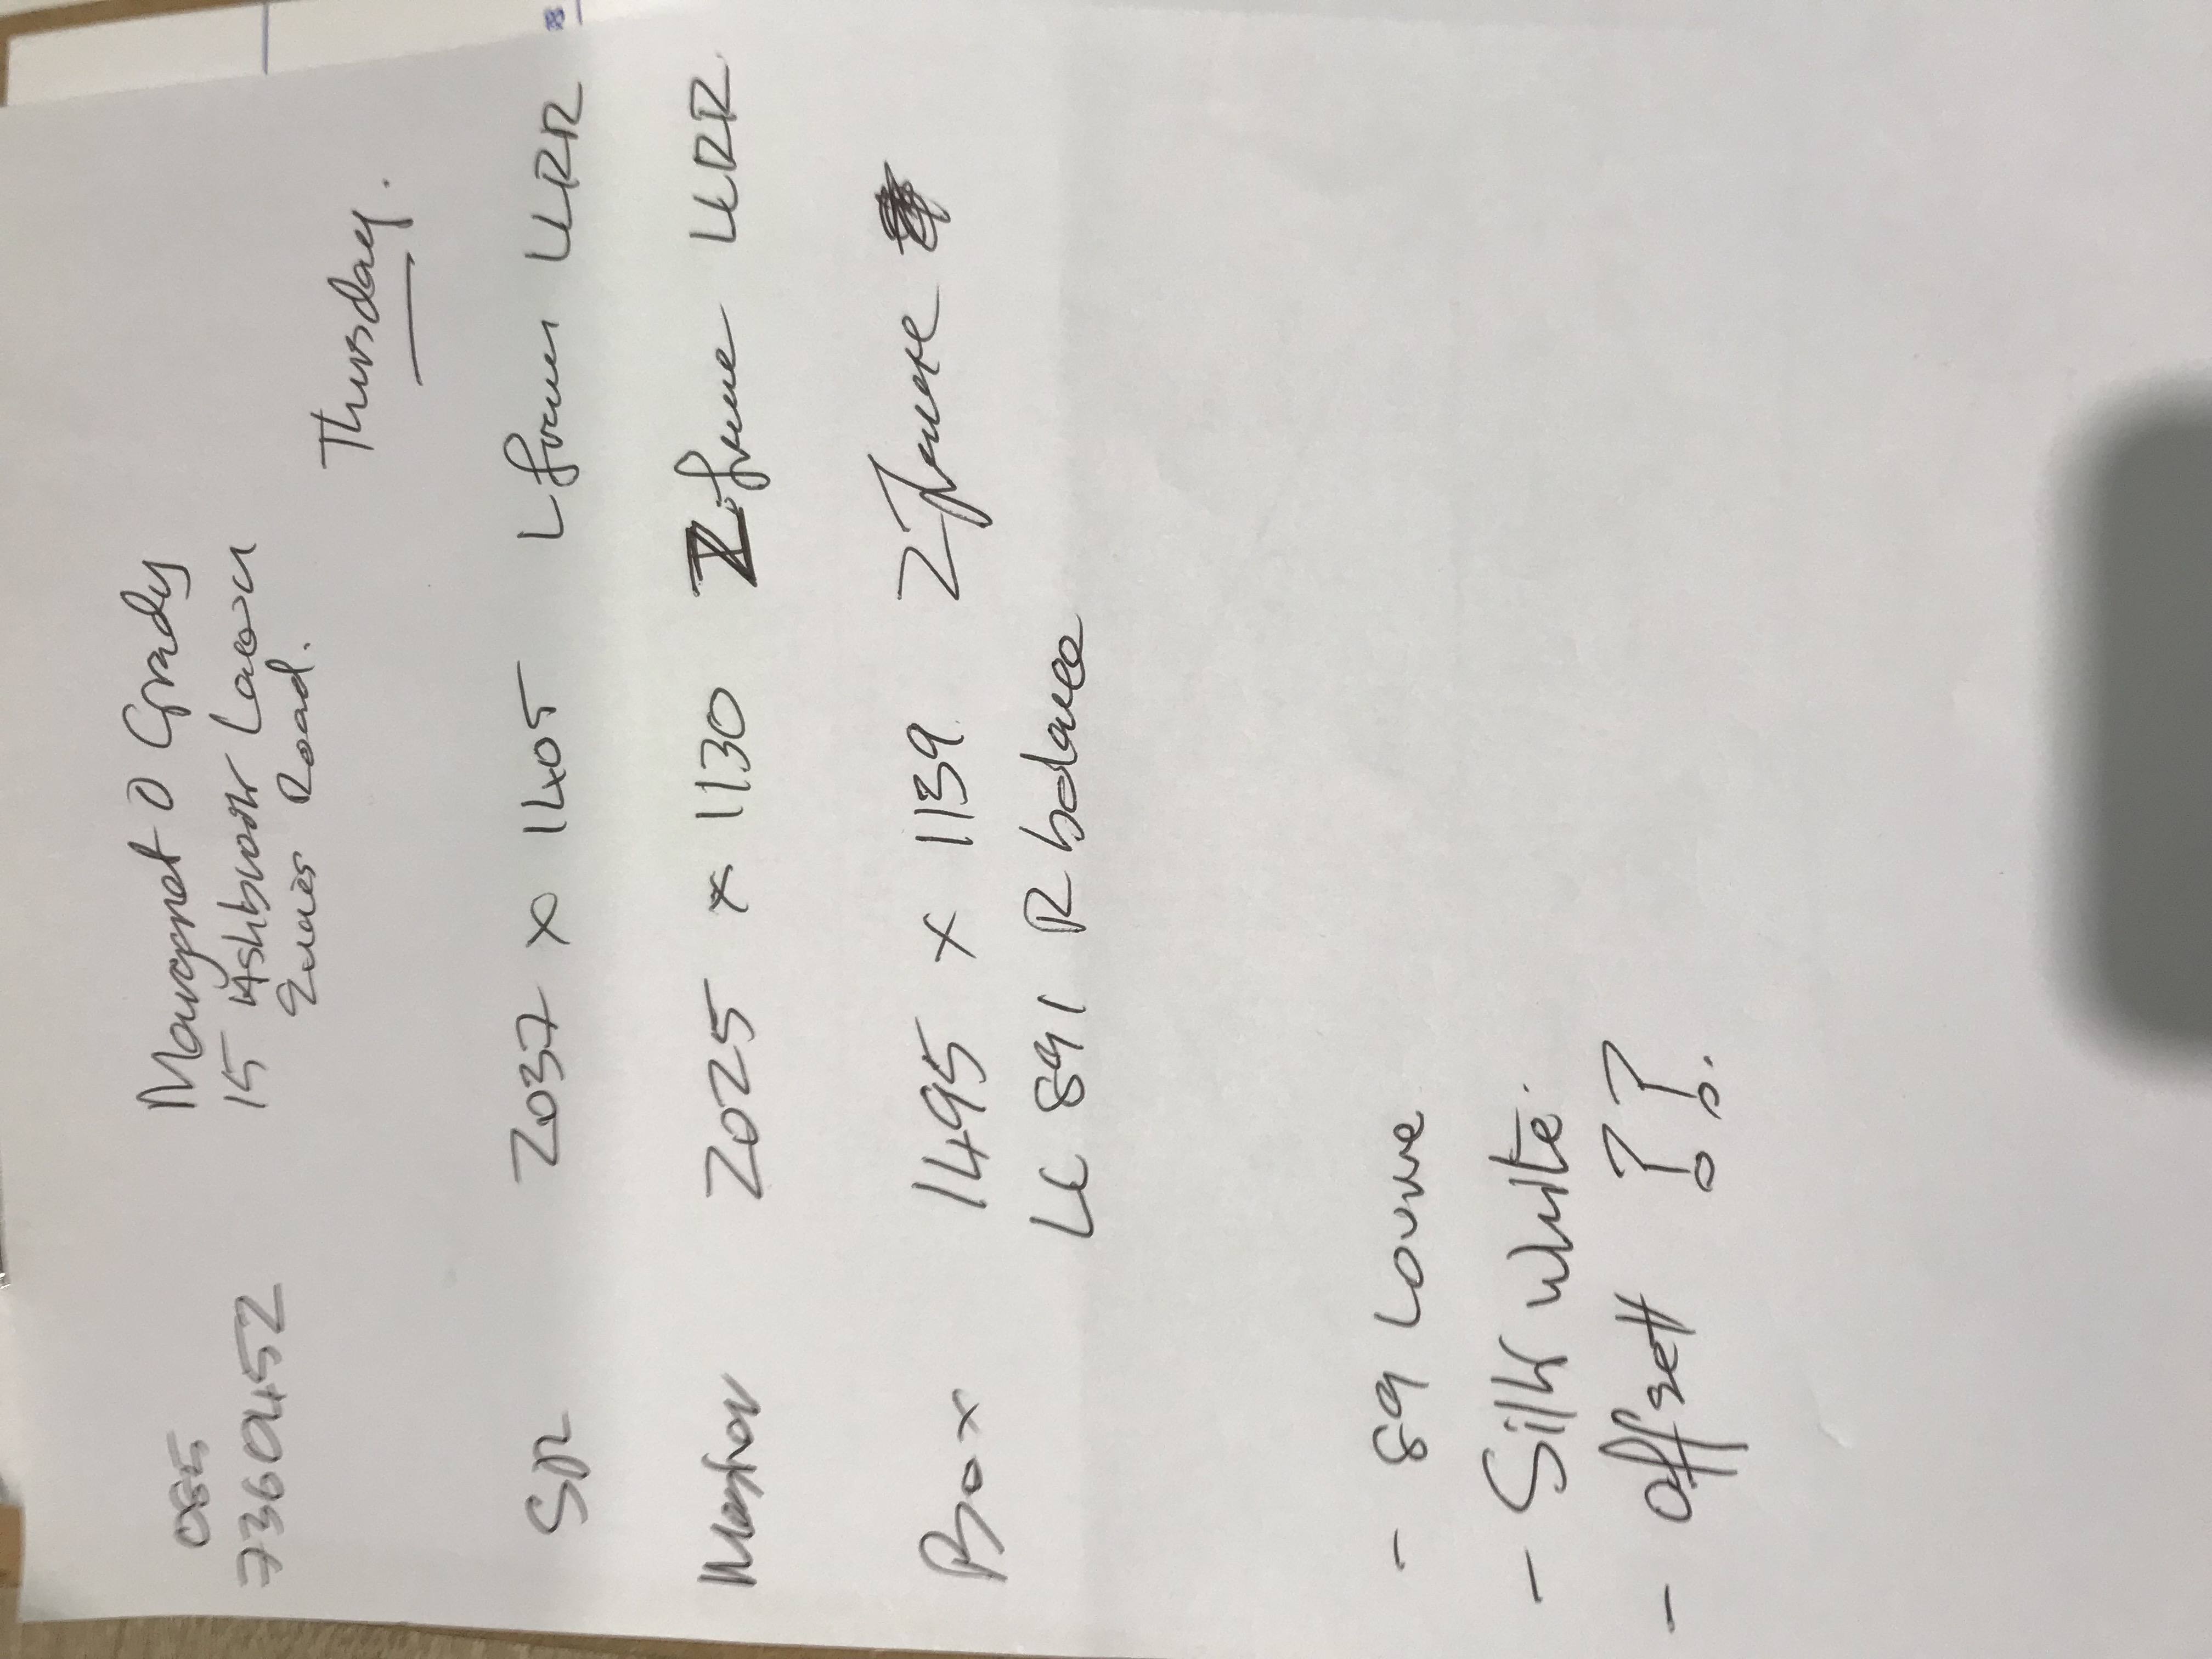 085 Margaret O Grady
7360452 15 Ashbrook Lawn
Ennis Road.
Thursday.
SR 2037 x 1405 L frame LLRR
Master 2025 x 1130 Z frame LLRR
Box 1495 x 1139 Z frame
LL 891 R balance
- 89 Louvre
- Silk white.
- offset ??.